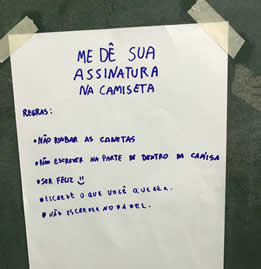 ME DÊ SUA
ASSINATURA
NA CAMISETA
REGRAS:
• NÃO ROUBAR AS CANETAS
• NÃO ESCREVER NA PARTE DE DENTRO DA CAMISA
• SER FELIZ
• ESCREVE O QUE VOCÊ QUISER.
• NÃO ESCREVER NO PAPEL.